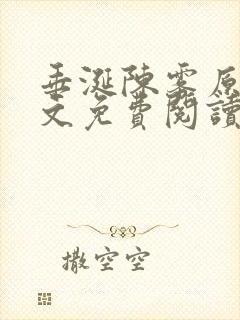 垂涎陳霧原
文免費閱讀
撒空空